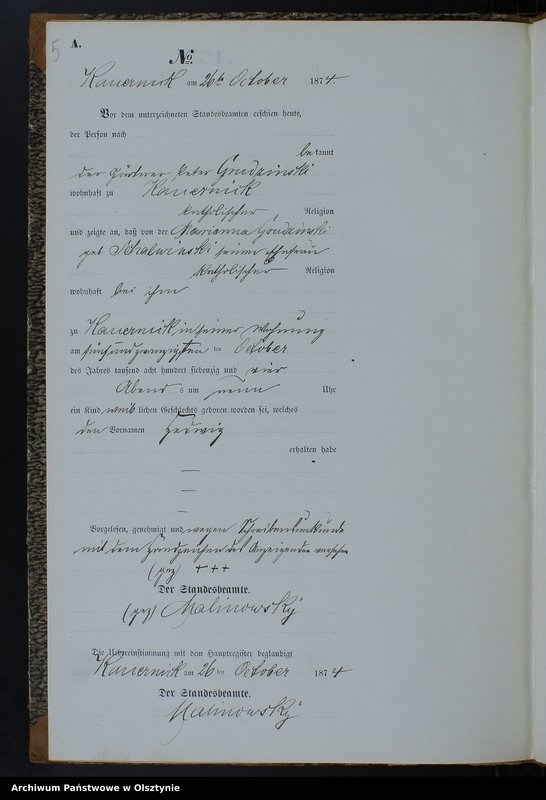 5
A.
№
Kauernick am 26ten October 1874
Vor dem unterzeichneten Standesbeamten erschien heute,
der Person nach
bekannt
der Gärtner Peter Grudzinski
wohnhaft zu Kauernick
katholischer Religion
und zeigte an, daß von der Marianna Grudzinski
geb. Schalwinski seiner Ehefrau
katholischer Religion
wohnhaft bei ihm
zu Kauernick in seiner Wohnung
am fünfundzwanzigsten ten October
des Jahres tausend acht hundert siebenzig und vier
Abends um neun Uhr
ein Kind weiblichen Geschlechts geboren worden sei, welches
den Vornamen Hedwig
erhalten habe
Vorgelesen, genehmigt und wegen Schreibensunkunde
mit dem Handzeichen des Anzeigenden versehen
(gez) + + +
Der Standesbeamte.
(gez) Malinowsky
Die Uebereinstimmung mit dem Hauptregister beglaubigt
Kauernick am 26 ten October 1874
Der Standesbeamte.
Malinowsky
Archiwum Państwowe w Olsztynie